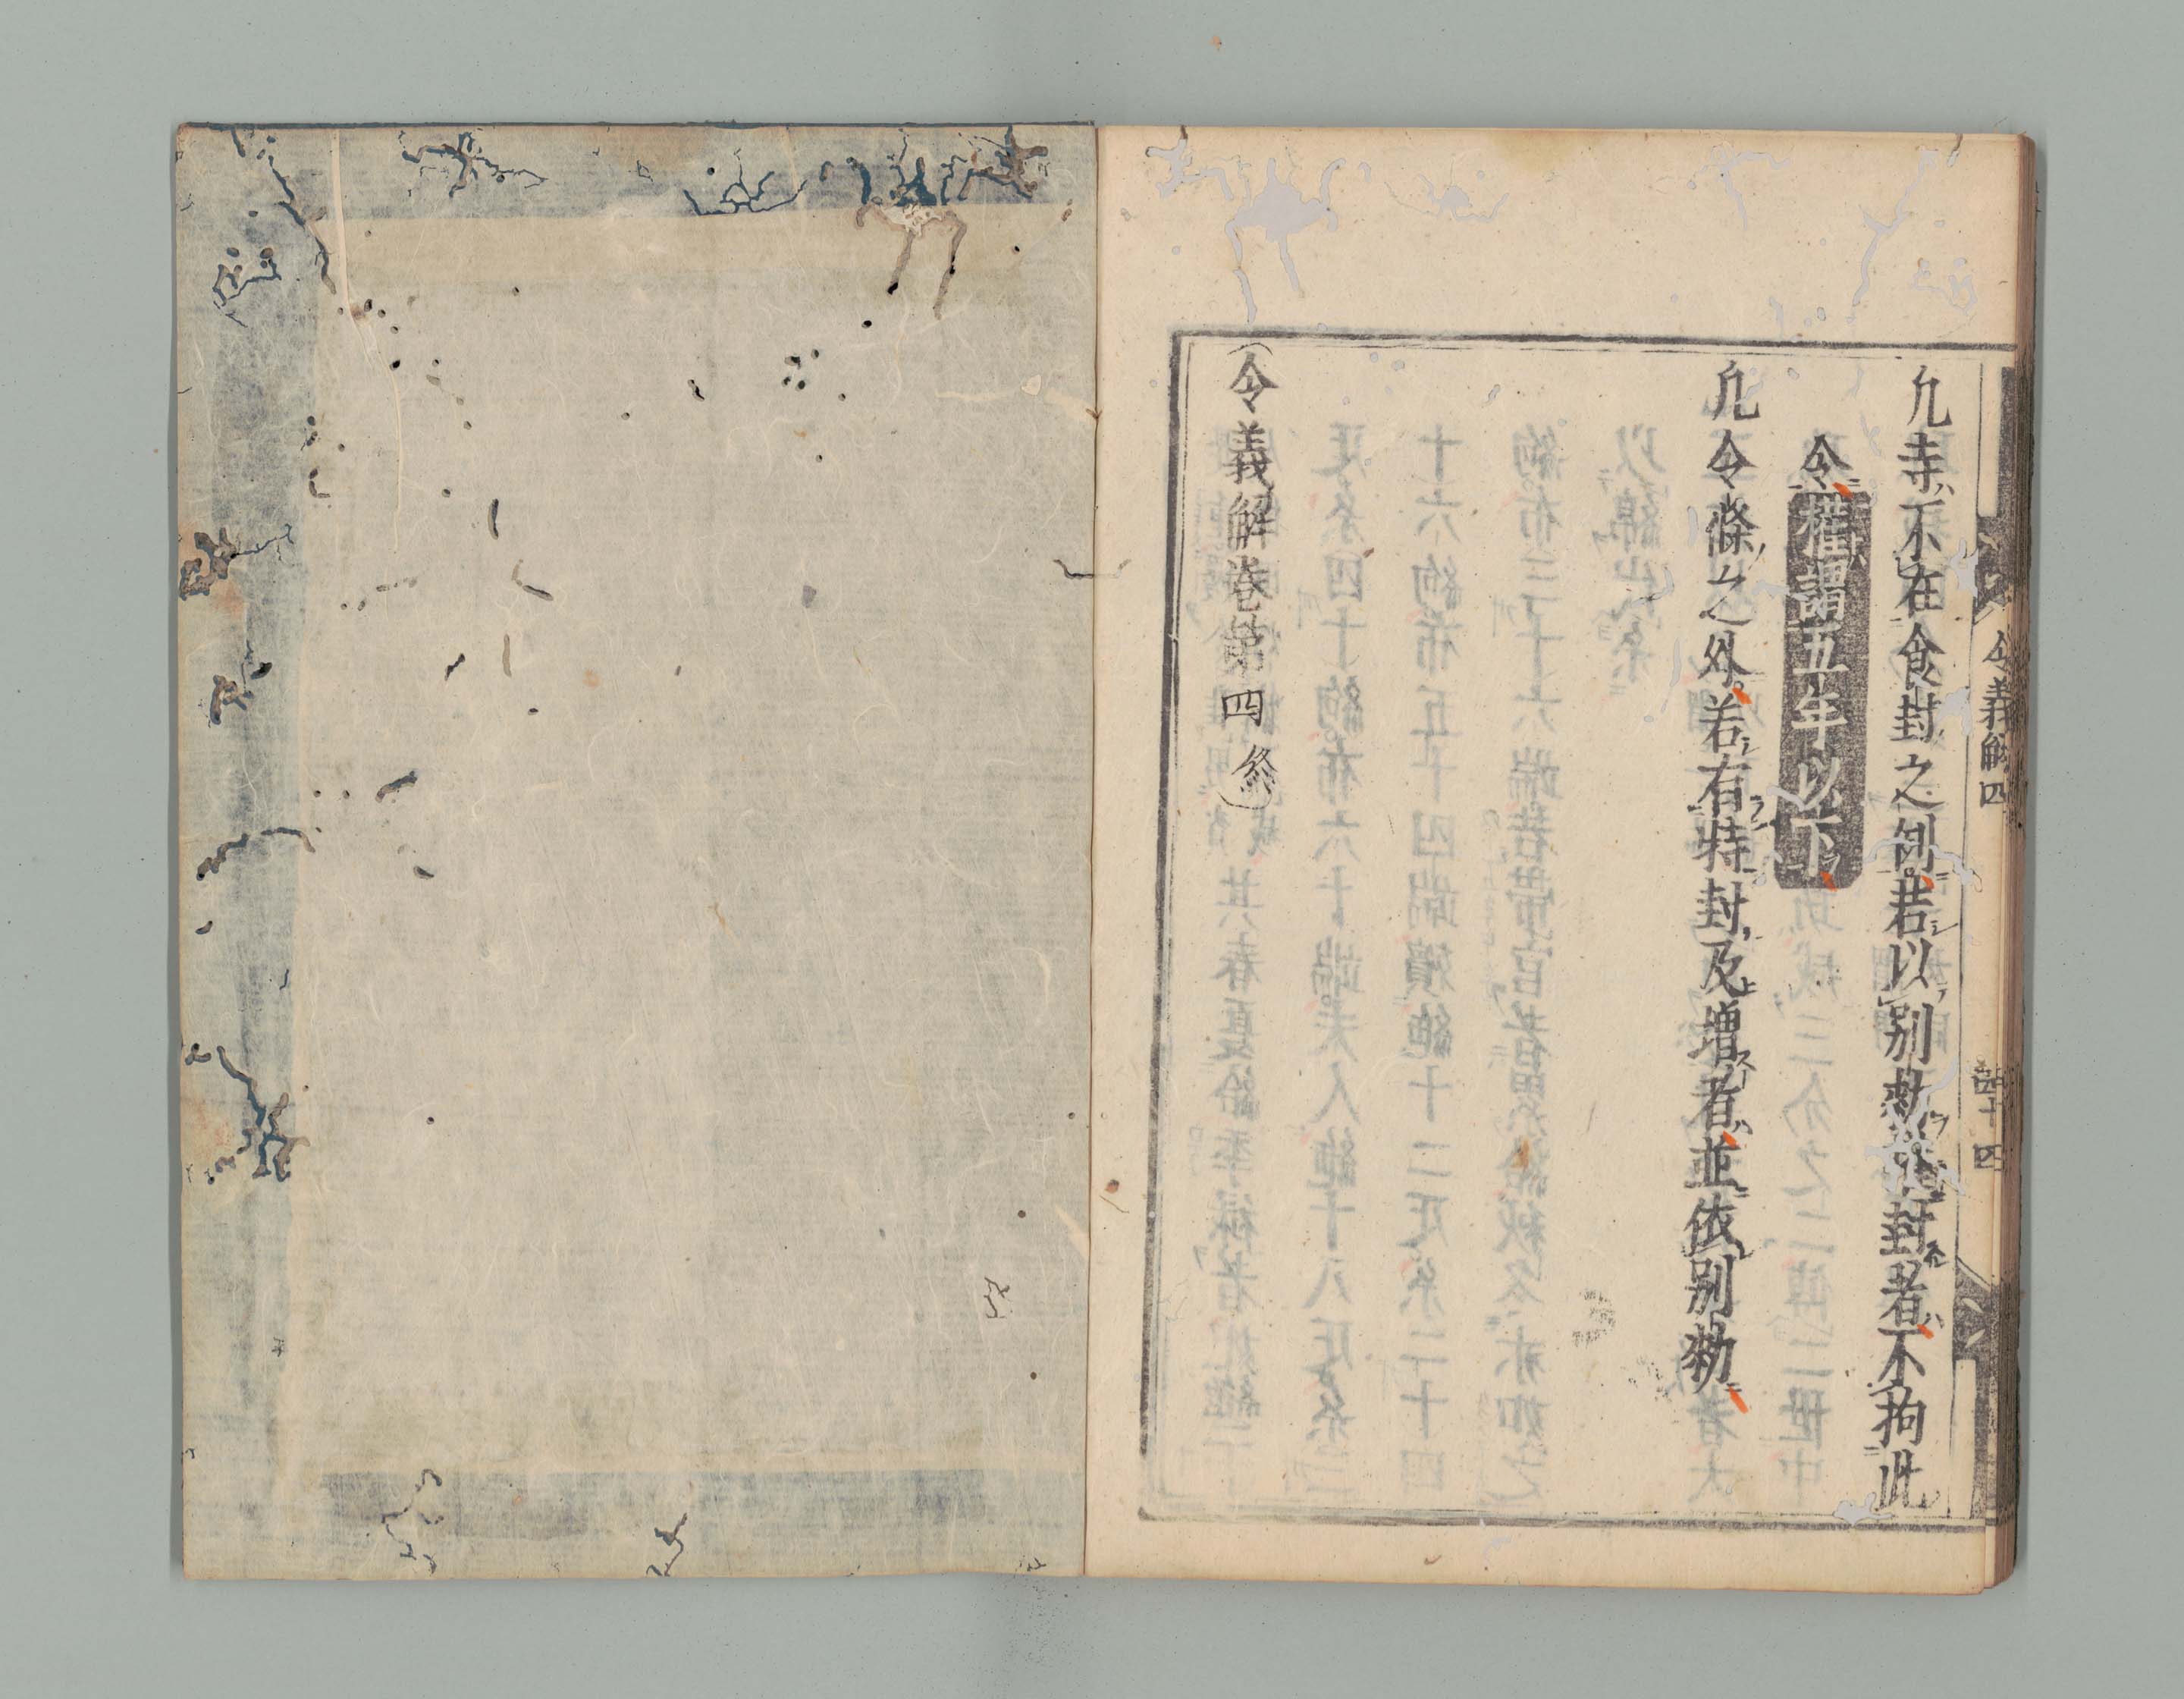 令義解四
四十四
凢寺不在食封之例若以別勅權封者不拘此
令權謂五年以下
凢令條之外若有特封及增者並依別勅
令義解卷第四終